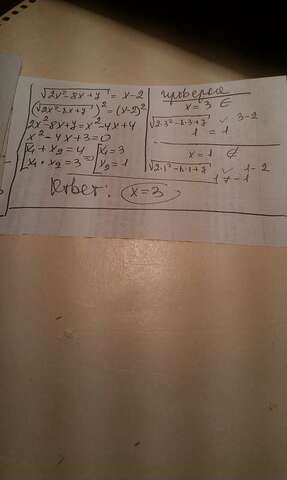 √2x²-8x+7 = x-2
(√2x²-8x+7)² = (x-2)²
2x²-8x+7 = x²-4x+4
x²-4x+3=0
x₁+x₂=4
x₁·x₂=3
x₁=3
x₂=1
Ответ: x=3
проверка
x=3 ∈
√2·3²-8·3+7 3-2
1 = 1
x=1 ∉
√2·1²-8·1+7 1-2
1 ≠ -1